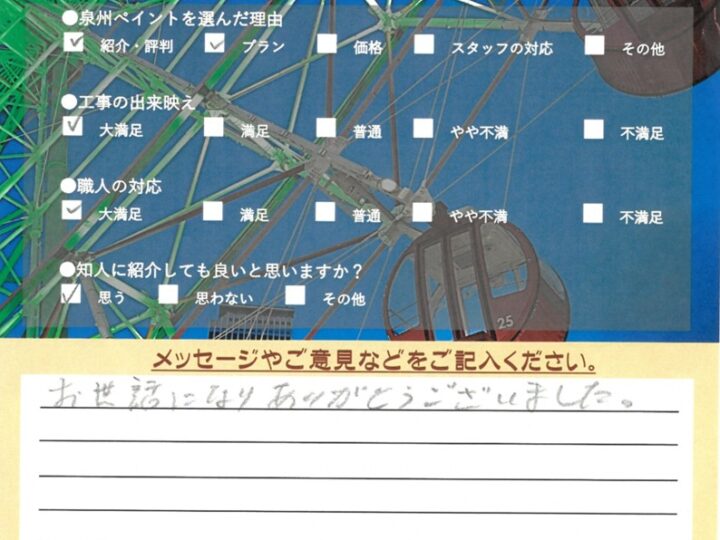 ●泉州ペイントを選んだ理由
紹介・評判 プラン 価格 スタッフの対応 その他
●工事の出来映え
大満足 満足 普通 やや不満 不満足
●職人の対応
大満足 満足 普通 やや不満 不満足
●知人に紹介しても良いと思いますか？
思う 思わない その他
25
メッセージやご意見などをご記入ください。
お世話になりありがとうございました。